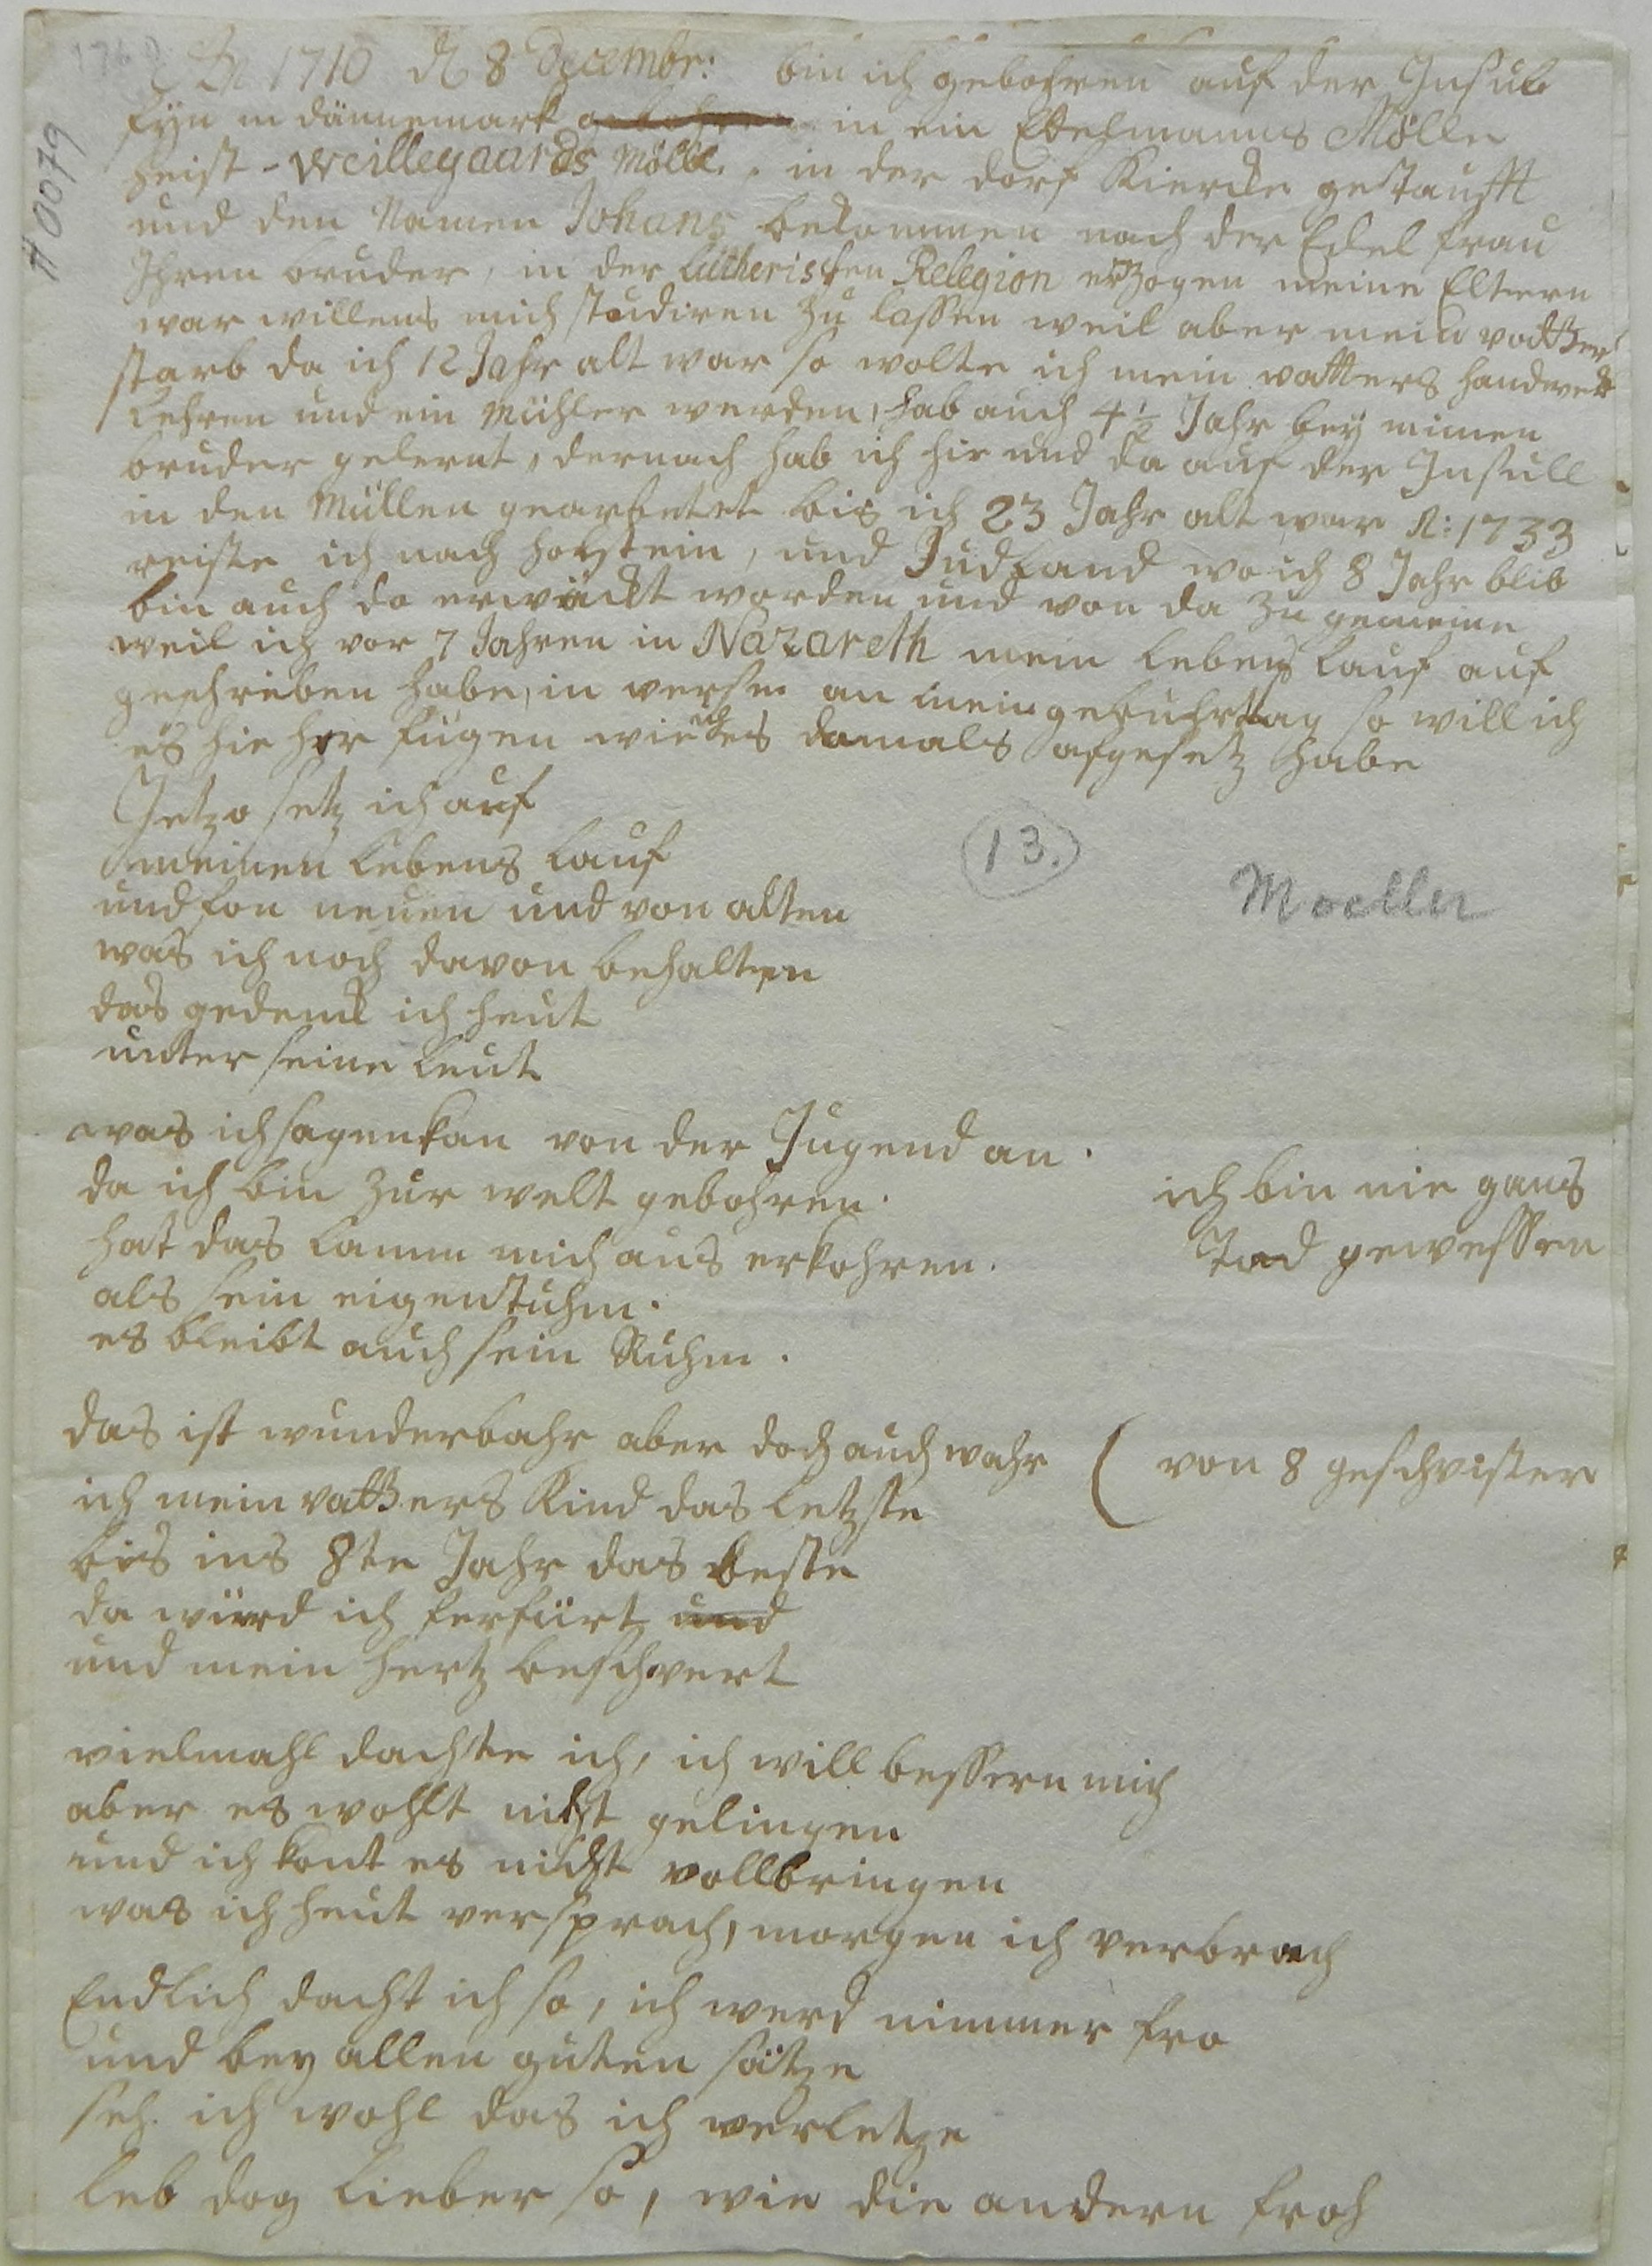 1710 d 8 Decembr: bin ich gebohren auf der Insul
fyn in dännemark gebohren in ein Edelmanns Mölle
heist - Weillegaards Mölle. in der dorf Kiercke getaufft
und den Namen Johans bekommen nach der Edel frau
Ihren bruder, in der Lutherischen Relegion erzogen meine Eltern
war willens mich studiren zu lassen weil aber mein vatter
starb da ich 12 Jahr alt war so wolte ich mein vatters handwerk
Lehren und ein Mühler werden, hab auch 4 1/2 Jahr bey minen
bruder gelernt, dernach hab ich hie und da auf der Insull
in den Müllen gearbetet bis ich 23 Jahr alt war A: 1733
reiste ich nach holstein, und Judland wo ich 8 Jahr blib
bin auch da erwäckt worden und von da zu gemeine
weil ich vor 7 Jahren in Nazareth mein lebens lauf auf
geschrieben habe, in versen an mein gebuhrtag so will ich
es hie her fügen wie ichs damals afgesetz habe
Jetzo setz ich auf
meinen lebens lauf
und fon neuen und von alten
was ich noch davon behalten
das gedenck ich heut
unter seine leut
13.
Moeller
was ich sagen kan von der Jugend an.
da ich bin zur welt gebohren.
hat das lamm mich aus erkohren.
als sein eigenstuhm.
es bleibt auch sein Ruhm.
ich bin nie gans
Tod gewessen
das ist wunderbahr aber doch auch wahr ( von 8 geschvister
ich mein vatters Kind das letzste
bis ins 8te Jahr das beste
da würd ich ferfürt und
und mein hertz beschvert
vielmahl dachte ich, ich will bessern mich
aber es wohlt nicht gelingen
und ich kont es nicht vollbringen
was ich heut versprach, morgen ich verbrach
Endlich dacht ich so, ich werd nimmer fro
und bey allen guten sätze
seh ich wohl das ich verletze
leb dog lieber so, wie die andern froh
#0079